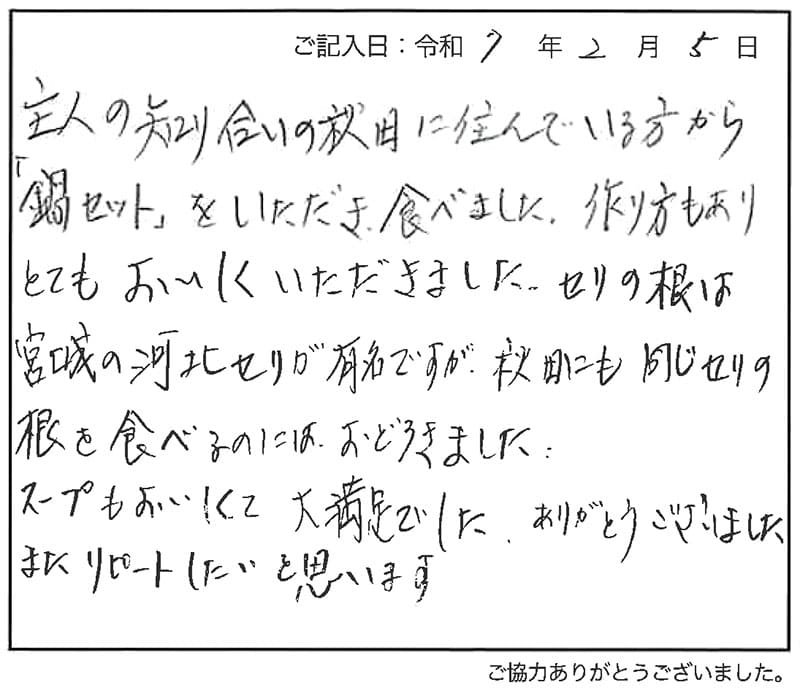 ご記入日：令和 7 年 2 月 5 日
主人の知り合いの秋田に住んでいる方から
「鍋セット」をいただき、食べました。作り方もあり
とてもおいしくいただきました。セリの根は
宮城の河北セリが有名ですが、秋田にも同じセリの
根を食べるのには、おどろきました。
スープもおいしくて大満足でした。ありがとうございました
またリピートしたいと思います
ご協力ありがとうございました。